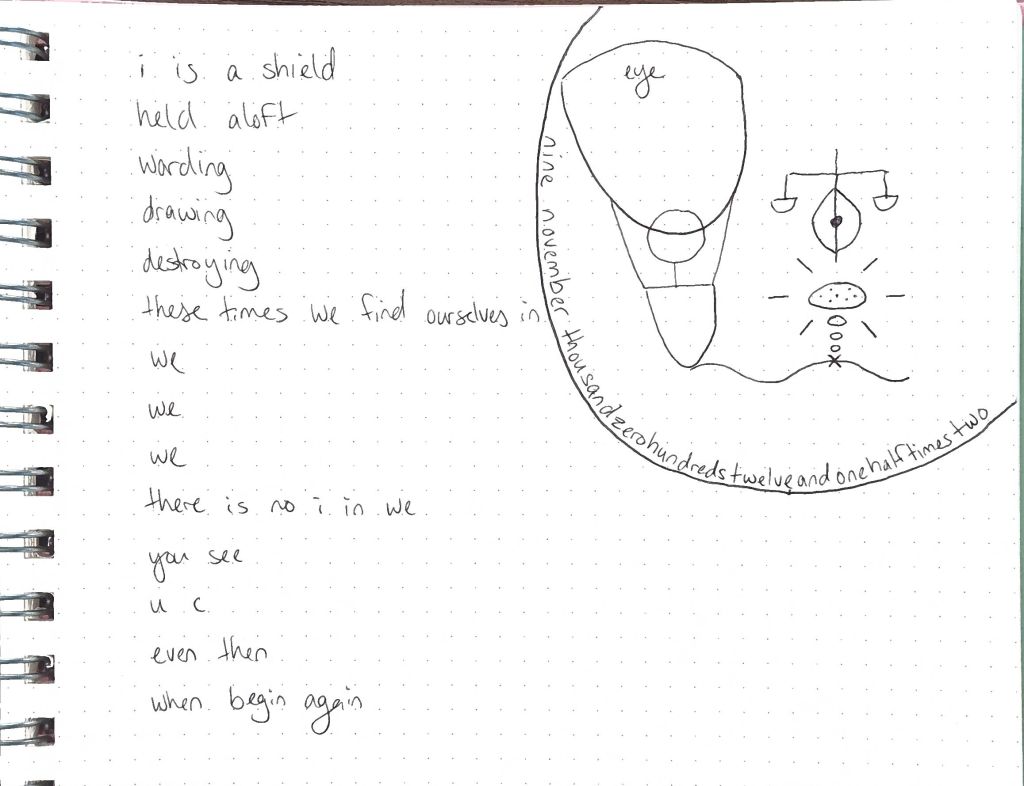 i is a shield
held aloft
warding
drawing
destroying
these times we find ourselves in
we
we
we
there is no i in we
you see
u c
even then
when begin again
eye
nine november thousandzerohundredstwelveandonehalftimestwo